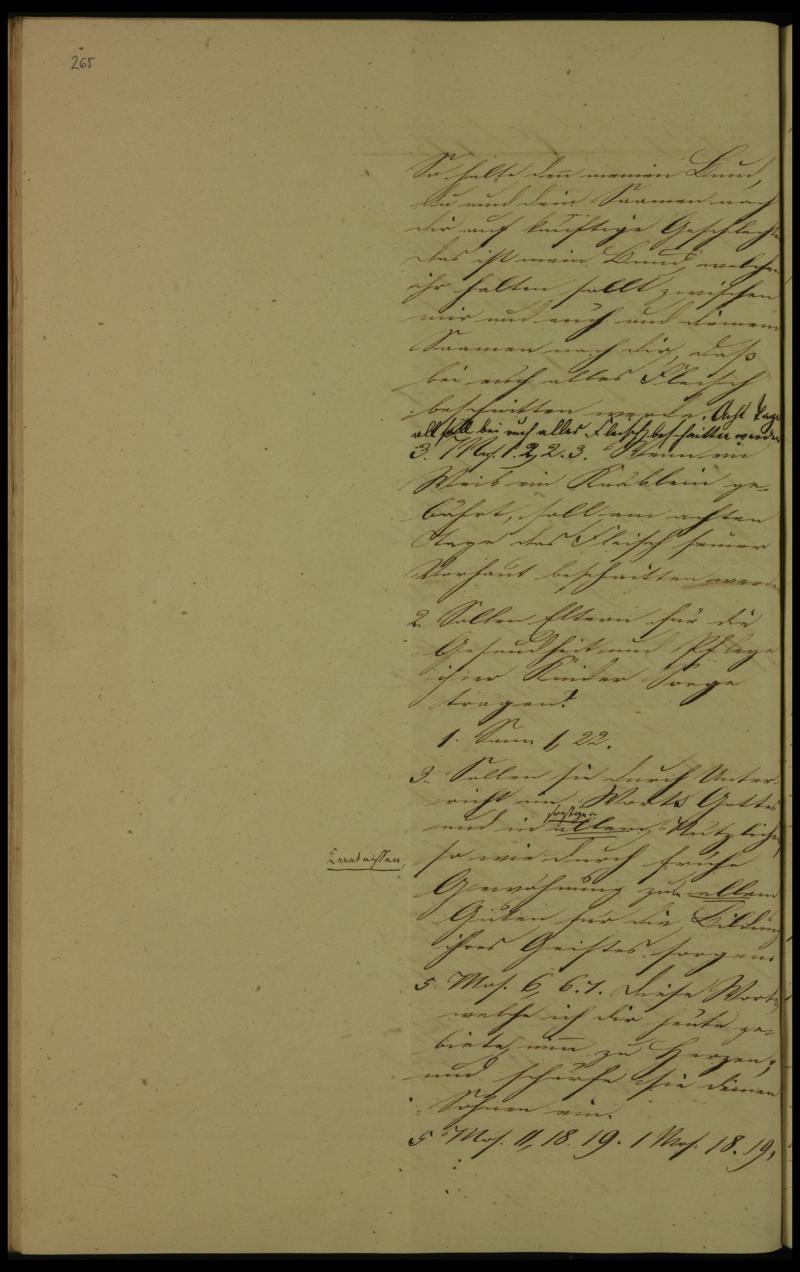 265
So halte denn meinen Bund,
du und dein Saamen nach
dir auf künftige Geschlechter
Das ist mein Bund, welchen
ihr halten sollt zwischen
mir und euch und deinem
Saamen nach dir, daß
bei euch alles Fleisch
beschnitten werde. Acht Tage
alt soll bei euch alles Fleisch beschnitten werden
3. Mos. 12, 2. 3. Wenn ein
Weib ein Knäblein ge-
bährt, soll am achten
Tage das Fleisch seiner
Vorhaut beschnitten werden
2. Sollen Eltern für die
Gesundheit und Pflege
ihrer Kinder Sorge
tragen.
1. Sam 1, 22.
3. Sollen sie durch Unter
richt im Worte Gottes
und in allem sonstigen Nützlichen
Kenntnissen,
so wie durch frühe
Gewöhnung zu allem
Guten für die Bildung
ihres Geistes sorgen.
5 Mos. 6, 6. 7. Diese Worte,
welche ich dir heute ge-
biete, nimm zu Herzen;
und schärfe sie deinen
Söhnen ein.
5 Mos. 11, 18. 19. 1 Mos. 18. 19,